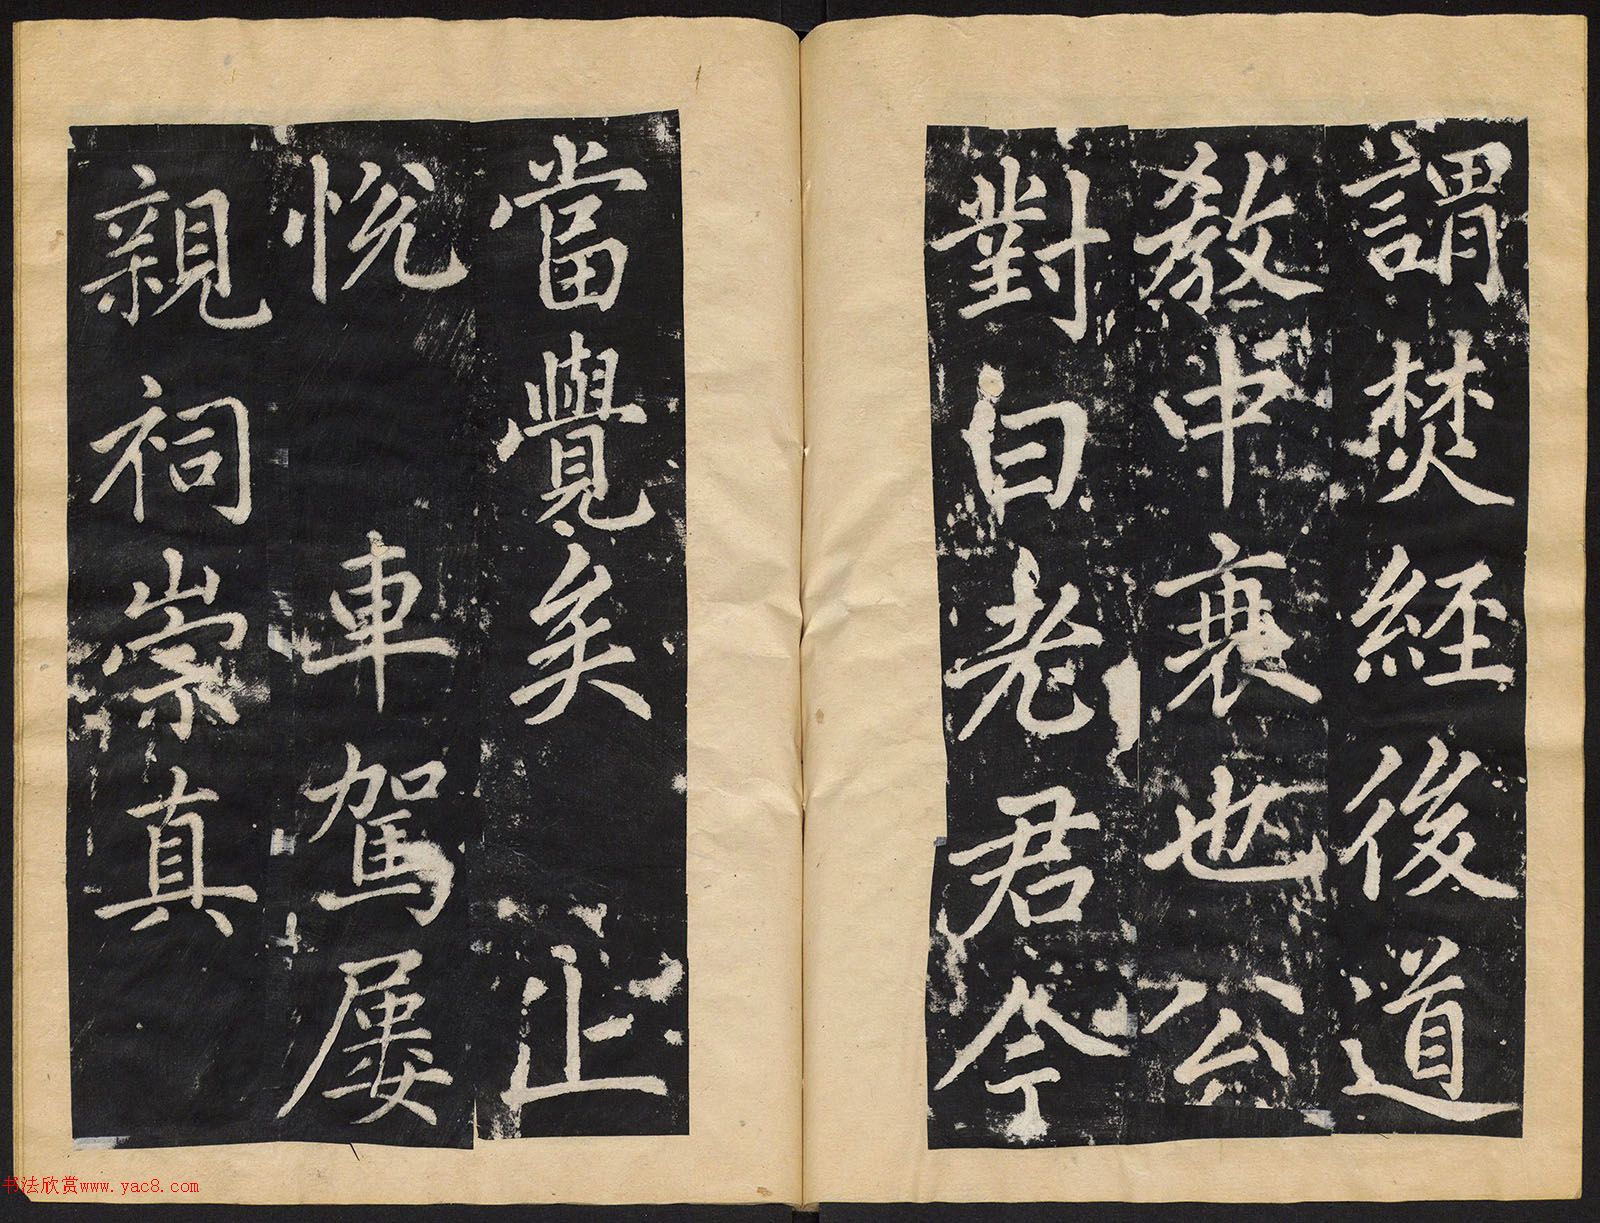 謂焚經後道
教中衰也公
對曰老君今
當覺矣止
悅車駕屢
親祠崇真
书法欣赏www.yac8.com